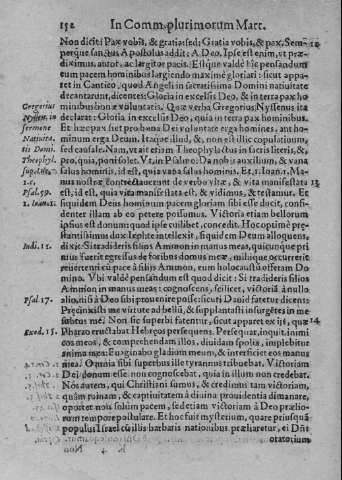 152 In Comm. plurimorum Mart.
Non dicit: Pax vobis, & gratia: sed; Gratia vobis, & pax. Sem-
perque sanctus Apostolus addit: A Deo. Ipse est enim, ut præ- 12
diximus, autor, ac largitor pacis. Estque valdè hîc pensandum
eum pacem hominibus largiendo maximè gloriari: sicut appa-
ret in Cantico, quod Angeli in sacratissima Domini nativitate
decantarunt, dicentes: Gloria in excelsis Deo, & in terra pax ho
Gregorius minibus bonæ voluntatis. Quæ verba Gregorius Nyssenus ita
Nyssen. in declarat: Gloria in excelsis Deo, quia in terra pax hominibus.
sermone Et hæc pax fuet pro bona Dei voluntate erga homines, ant ho-
Nativita. minum erga Deum. Itaque illud, &, non est illic copulativum,
tis Domi. sed causale. Nam, ut ait etiam Theophylactus in sacris literis, &,
Theophyl. pro, quia, poni solet. Ut, in Psalmo: Da nobis auxilium, & vana
supra loc. salus hominis, id est, quia vana salus hominis. Et, 1. Ioan. 1. Ma-
1. c. nus nostræ contrectaverunt de verbo vitæ, & vita manifestata 13
Psal. 59. est, id est, quia vita manifestata est, & vidimus, & testamur. Et
1. Ioan. 1. siquidem Deus hominum pacem gloriam sibi esse ducit, confi-
denter illam ab eo petere possumus. Victoria etiam bellorum
ipsius est donum: quod ipse cuilibet, concedit. Hoc optimè præ-
stantissimus dux Iephte intellexit, siquidem Deum alloquens,
Iudi. 11. dixit. Si tradideris filios Ammon in manus meas, quicunque pri
mus fuerit egressus de foribus domus meæ, mihique occurrerit
revertenti cum pace à filiis Ammon, eum holocaustũ offeram Do
mino. Vbi valdè pensandum est quod dicit: Si tradideris filios
Ammon in manus meas: cognoscens, scilicet, victoriã à nullo
Psal. 17. alio, nisi à Deo sibi provenire posse: sicuti David fatetur dicens
Præcinxisti me virtute ad bellũ, & supplantasti insurgẽtes in me
subtus me. Non sic superbi fatentur, sicut apparet ex iis, quæ 14
Exod. 15. Pharao eructabat Hebreos persequens. Persequar, inquit, inimi
cos meos, & comprehendam illos, dividam spolia, implebitur
anima mea: Euaginabo gladium meum, & interficiet eos manus
mea. Omnia sibi superbus ille tyrannus tribuebat. Victoriam
Dei donum esse non cognoscebat, quia in illum non credebat.
Nos autem, qui Christiani sumus, & credimus tam victoriam,
quàm ruinam, & captivitatem à divina providentia dimanare,
oportet nos solùm pacem, sed etiam victoriam à Deo prælio-
rum tempore postulare. Et hoc fuit mysterium, quare priusquã
populus Israel cũ illis barbaris nationibus præliaretur, ei Dñs
oratorium